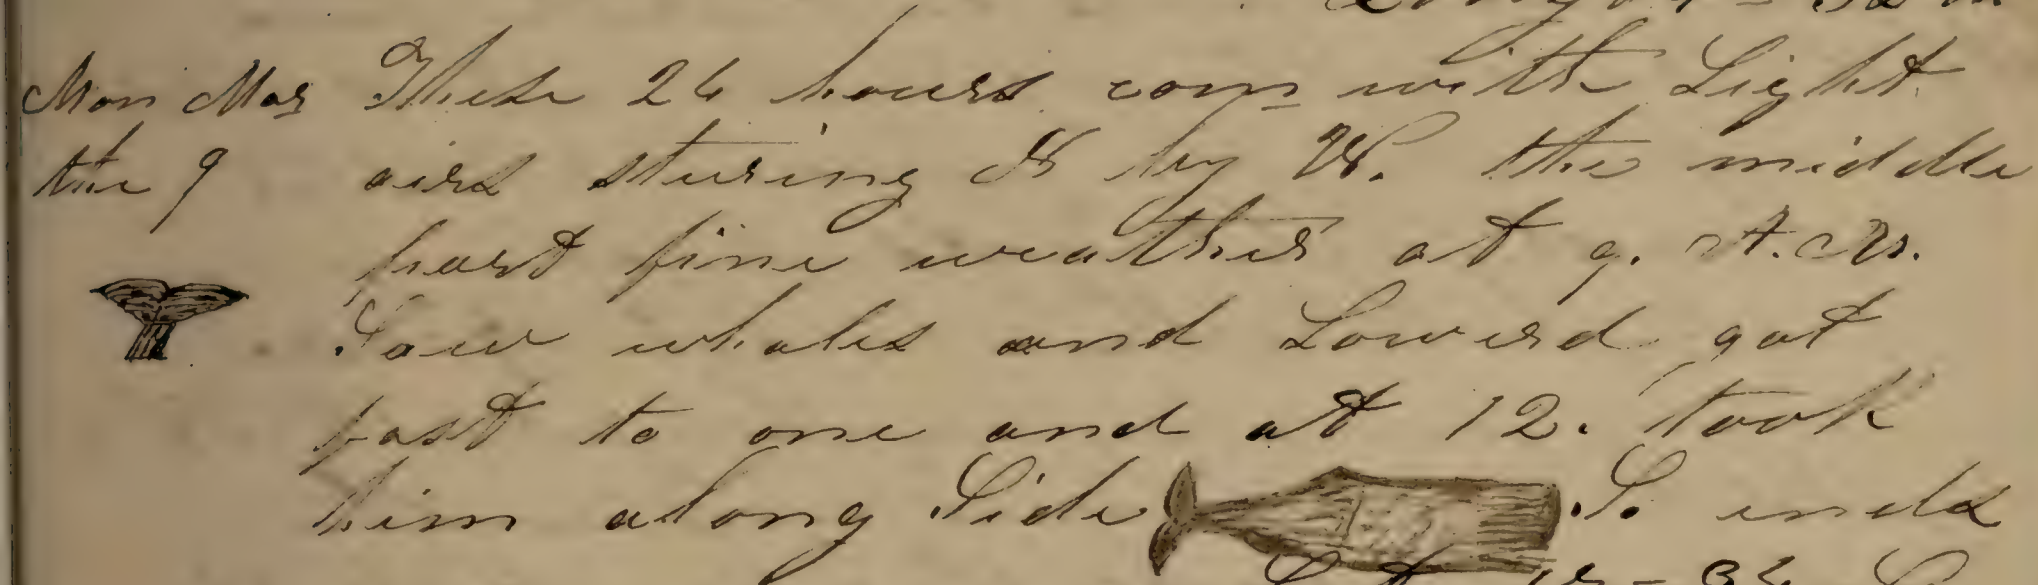 Mon Mar These 24 hours com= with Light
the 9 airs stering by W. the middle
part fine weather at 9. A.M.
Saw whales and Lowerd got
fast to one and at 12. took
him along Side So ends